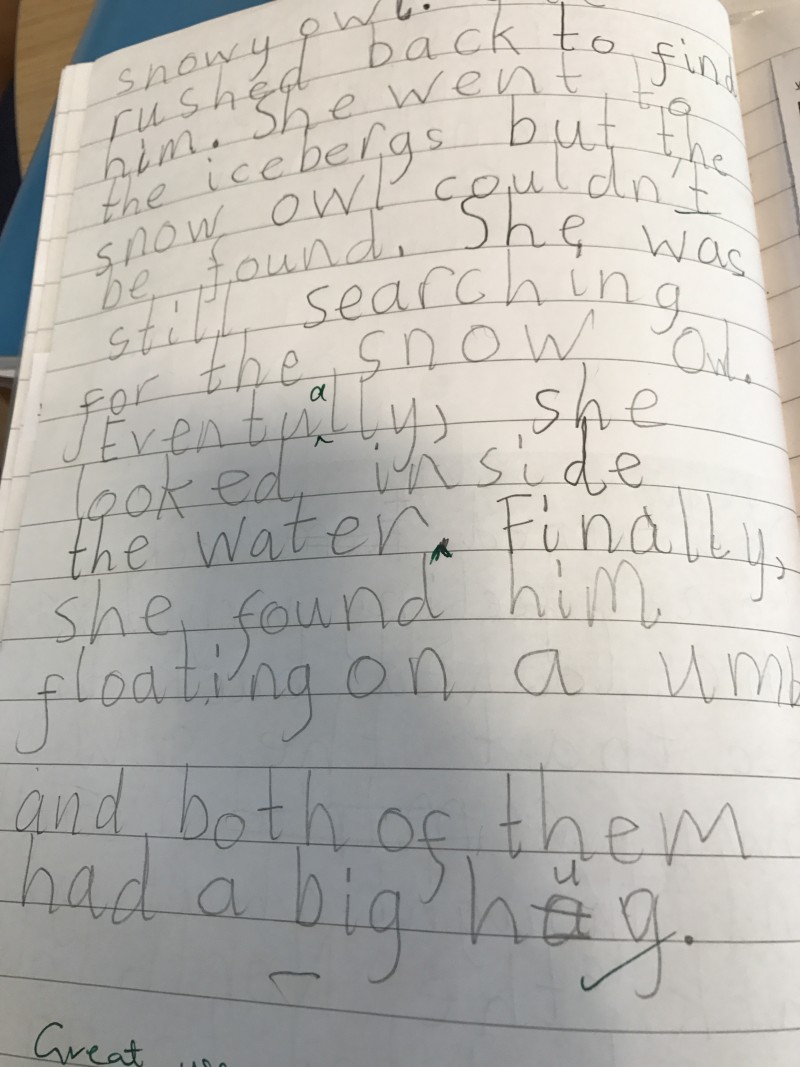 snowy owl.
rushed back to find
him. She went to
the icebergs but the
snow owl couldn't
be found. She was
still searching
for the snow owl.
Eventually, she
looked inside
the water. Finally,
she found him
floating on a umb
and both of them
had a big hug.
Great